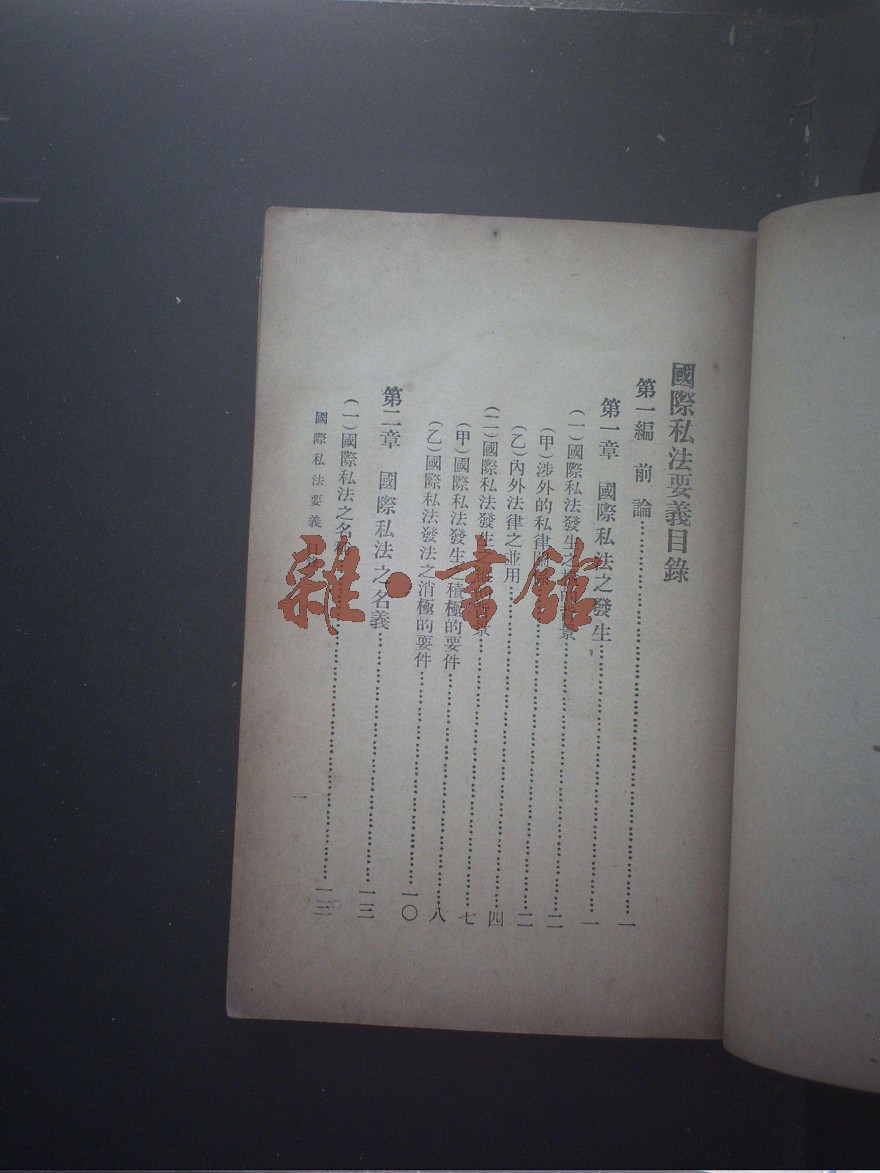 國際私法要義目錄
第一編 前論……一
第一章 國際私法之發生……一
(一)國際私法發生之背景……二
(甲)涉外的私律……二
(乙)內外法律之並用……四
(二)國際私法發生之背景……七
(甲)國際私法發生之積極的要件……八
(乙)國際私法發法之消極的要件……一〇
第二章 國際私法之名義……一三
(一)國際私法之名稱……一三
國際私法要義目錄
一
雜·書館